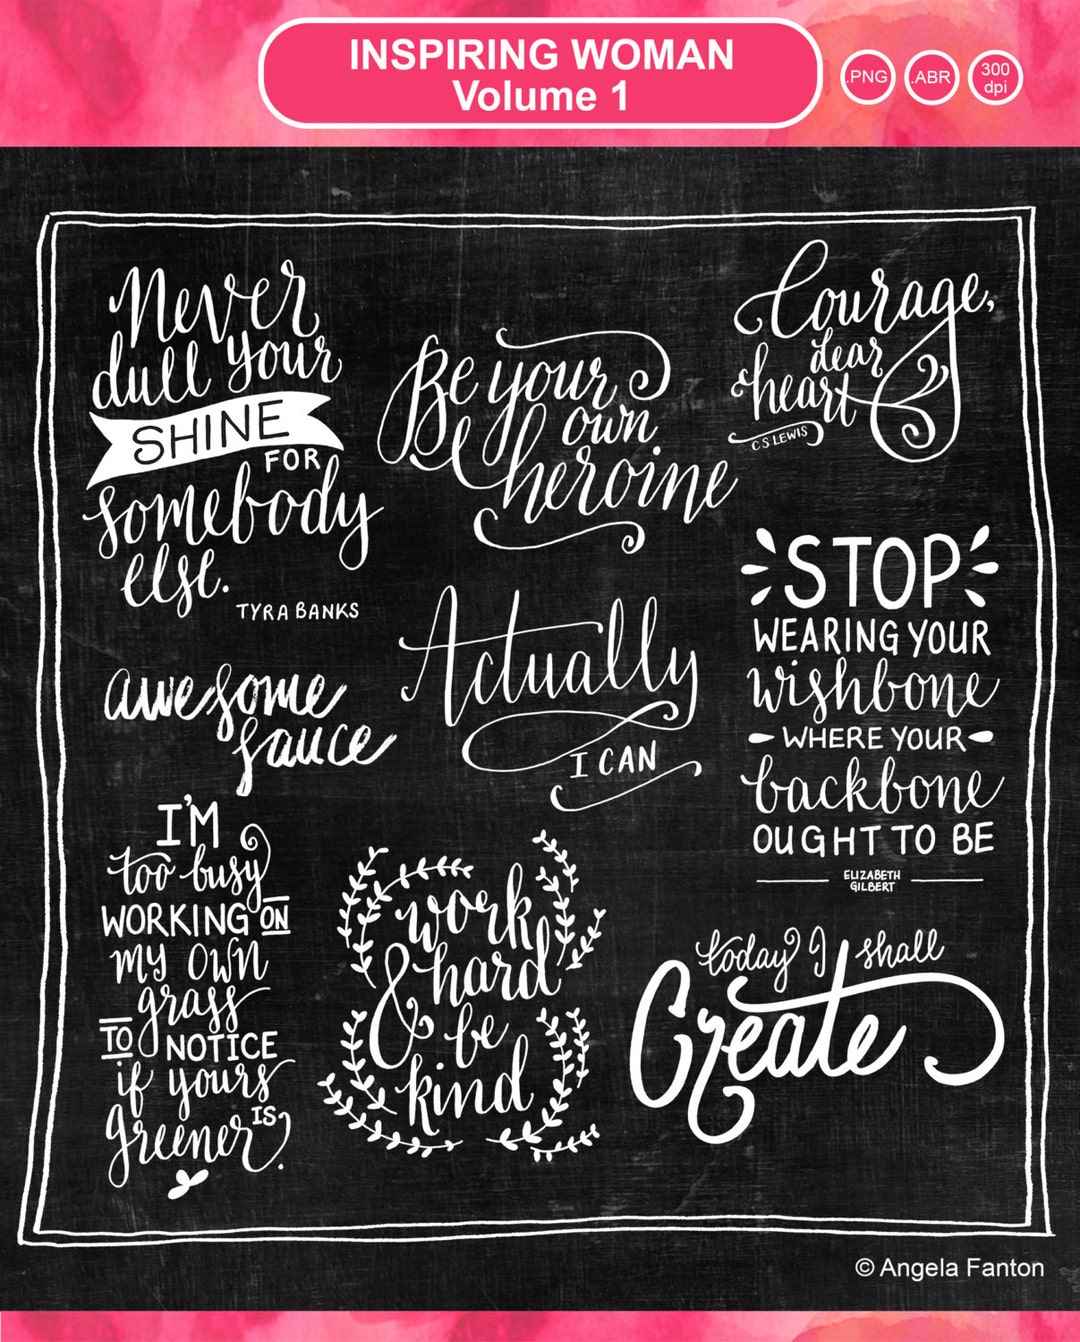 INSPIRING WOMAN
Volume 1
.PNG
.ABR
300
dpi
Never
dull your
SHINE
FOR
somebody
else.
TYRA BANKS
Be your
own
heroine
Courage,
dear
heart
C S LEWIS
awesome
sauce
Actually
I CAN
STOP
WEARING YOUR
wishbone
WHERE YOUR
backbone
OUGHT TO BE
ELIZABETH
GILBERT
I'M
too busy
WORKING ON
my own
grass
TO NOTICE
if yours
IS
greener.
work
& hard
be
kind
today I shall
Create
© Angela Fanton